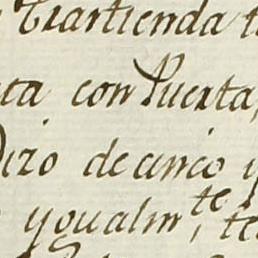 Trartienda t
ta con Puerta,
izo de cinco y
ygualm^te, te